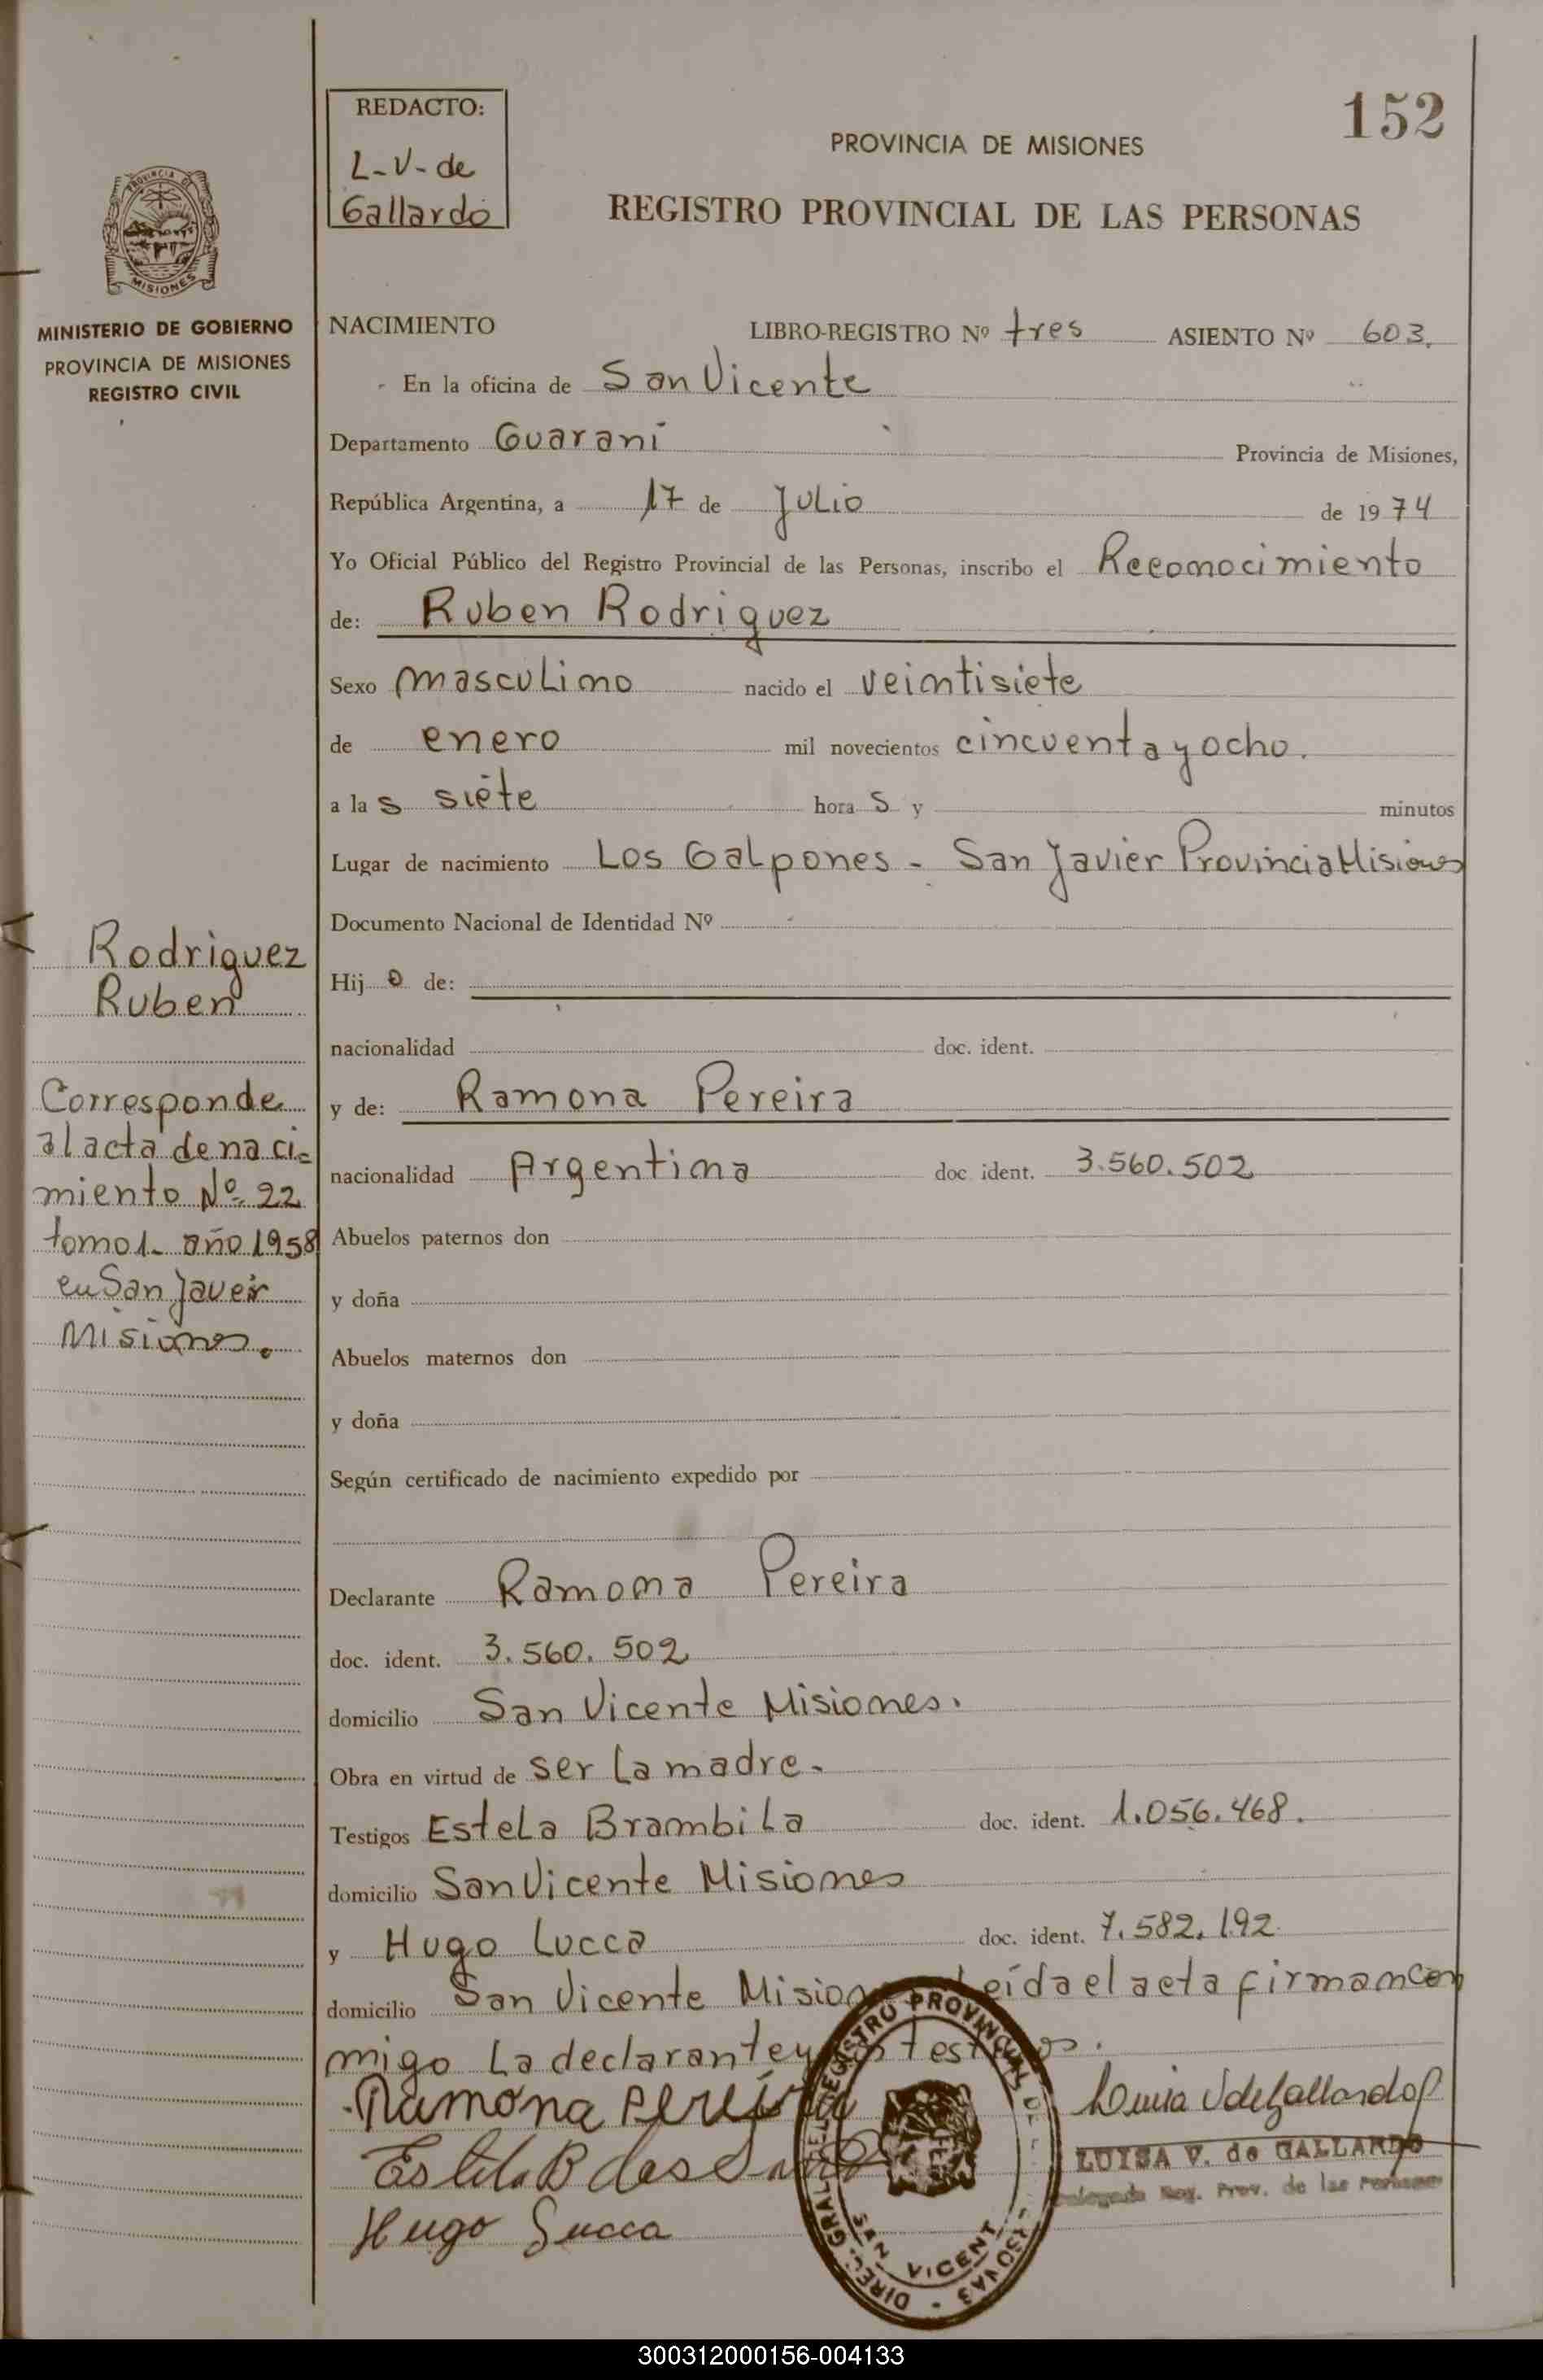 152
REDACTO:
L-V-de
Gallardo
PROVINCIA DE MISIONES
REGISTRO PROVINCIAL DE LAS PERSONAS
PROVINCIA DE
MISIONES
MINISTERIO DE GOBIERNO
PROVINCIA DE MISIONES
REGISTRO CIVIL
NACIMIENTO LIBRO-REGISTRO Nº tres ASIENTO Nº 603.
En la oficina de San Vicente
Departamento Guaraní Provincia de Misiones,
República Argentina, a 17 de Julio de 1974
Yo Oficial Público del Registro Provincial de las Personas, inscribo el Reconocimiento
de: Ruben Rodriguez
Sexo masculino nacido el veintisiete
de enero mil novecientos cincuenta y ocho.
a las siete horas y minutos
Lugar de nacimiento Los Galpones - San Javier Provincia Misiones
Documento Nacional de Identidad Nº
Hijo de:
nacionalidad doc. ident.
y de: Ramona Pereira
nacionalidad Argentina doc. ident. 3.560.502
Abuelos paternos don
y doña
Abuelos maternos don
y doña
Según certificado de nacimiento expedido por
Declarante Ramona Pereira
doc. ident. 3.560.502
domicilio San Vicente Misiones.
Obra en virtud de ser la madre.
Testigos Estela Brambila doc. ident. 1.056.468.
domicilio San Vicente Misiones
y Hugo Lucca doc. ident. 7.582.192
domicilio San Vicente Misiones Leída el acta firman con
migo la declarante y los testigos.
Rodriguez
Ruben
Corresponde
al acta de naci=
miento Nº 22
tomo 1- año 1958
en San Javeir
Misiones.
Ramona Pereira
Estela B dos
Hugo Lucca
Luisa V de Gallardo
LUISA V. de GALLARDO
Delegada Reg. Prov. de las Personas
DIREC. GRAL. DEL REGISTRO PROVINCIAL DE PERSONAS
SAN VICENTE
300312000156-004133